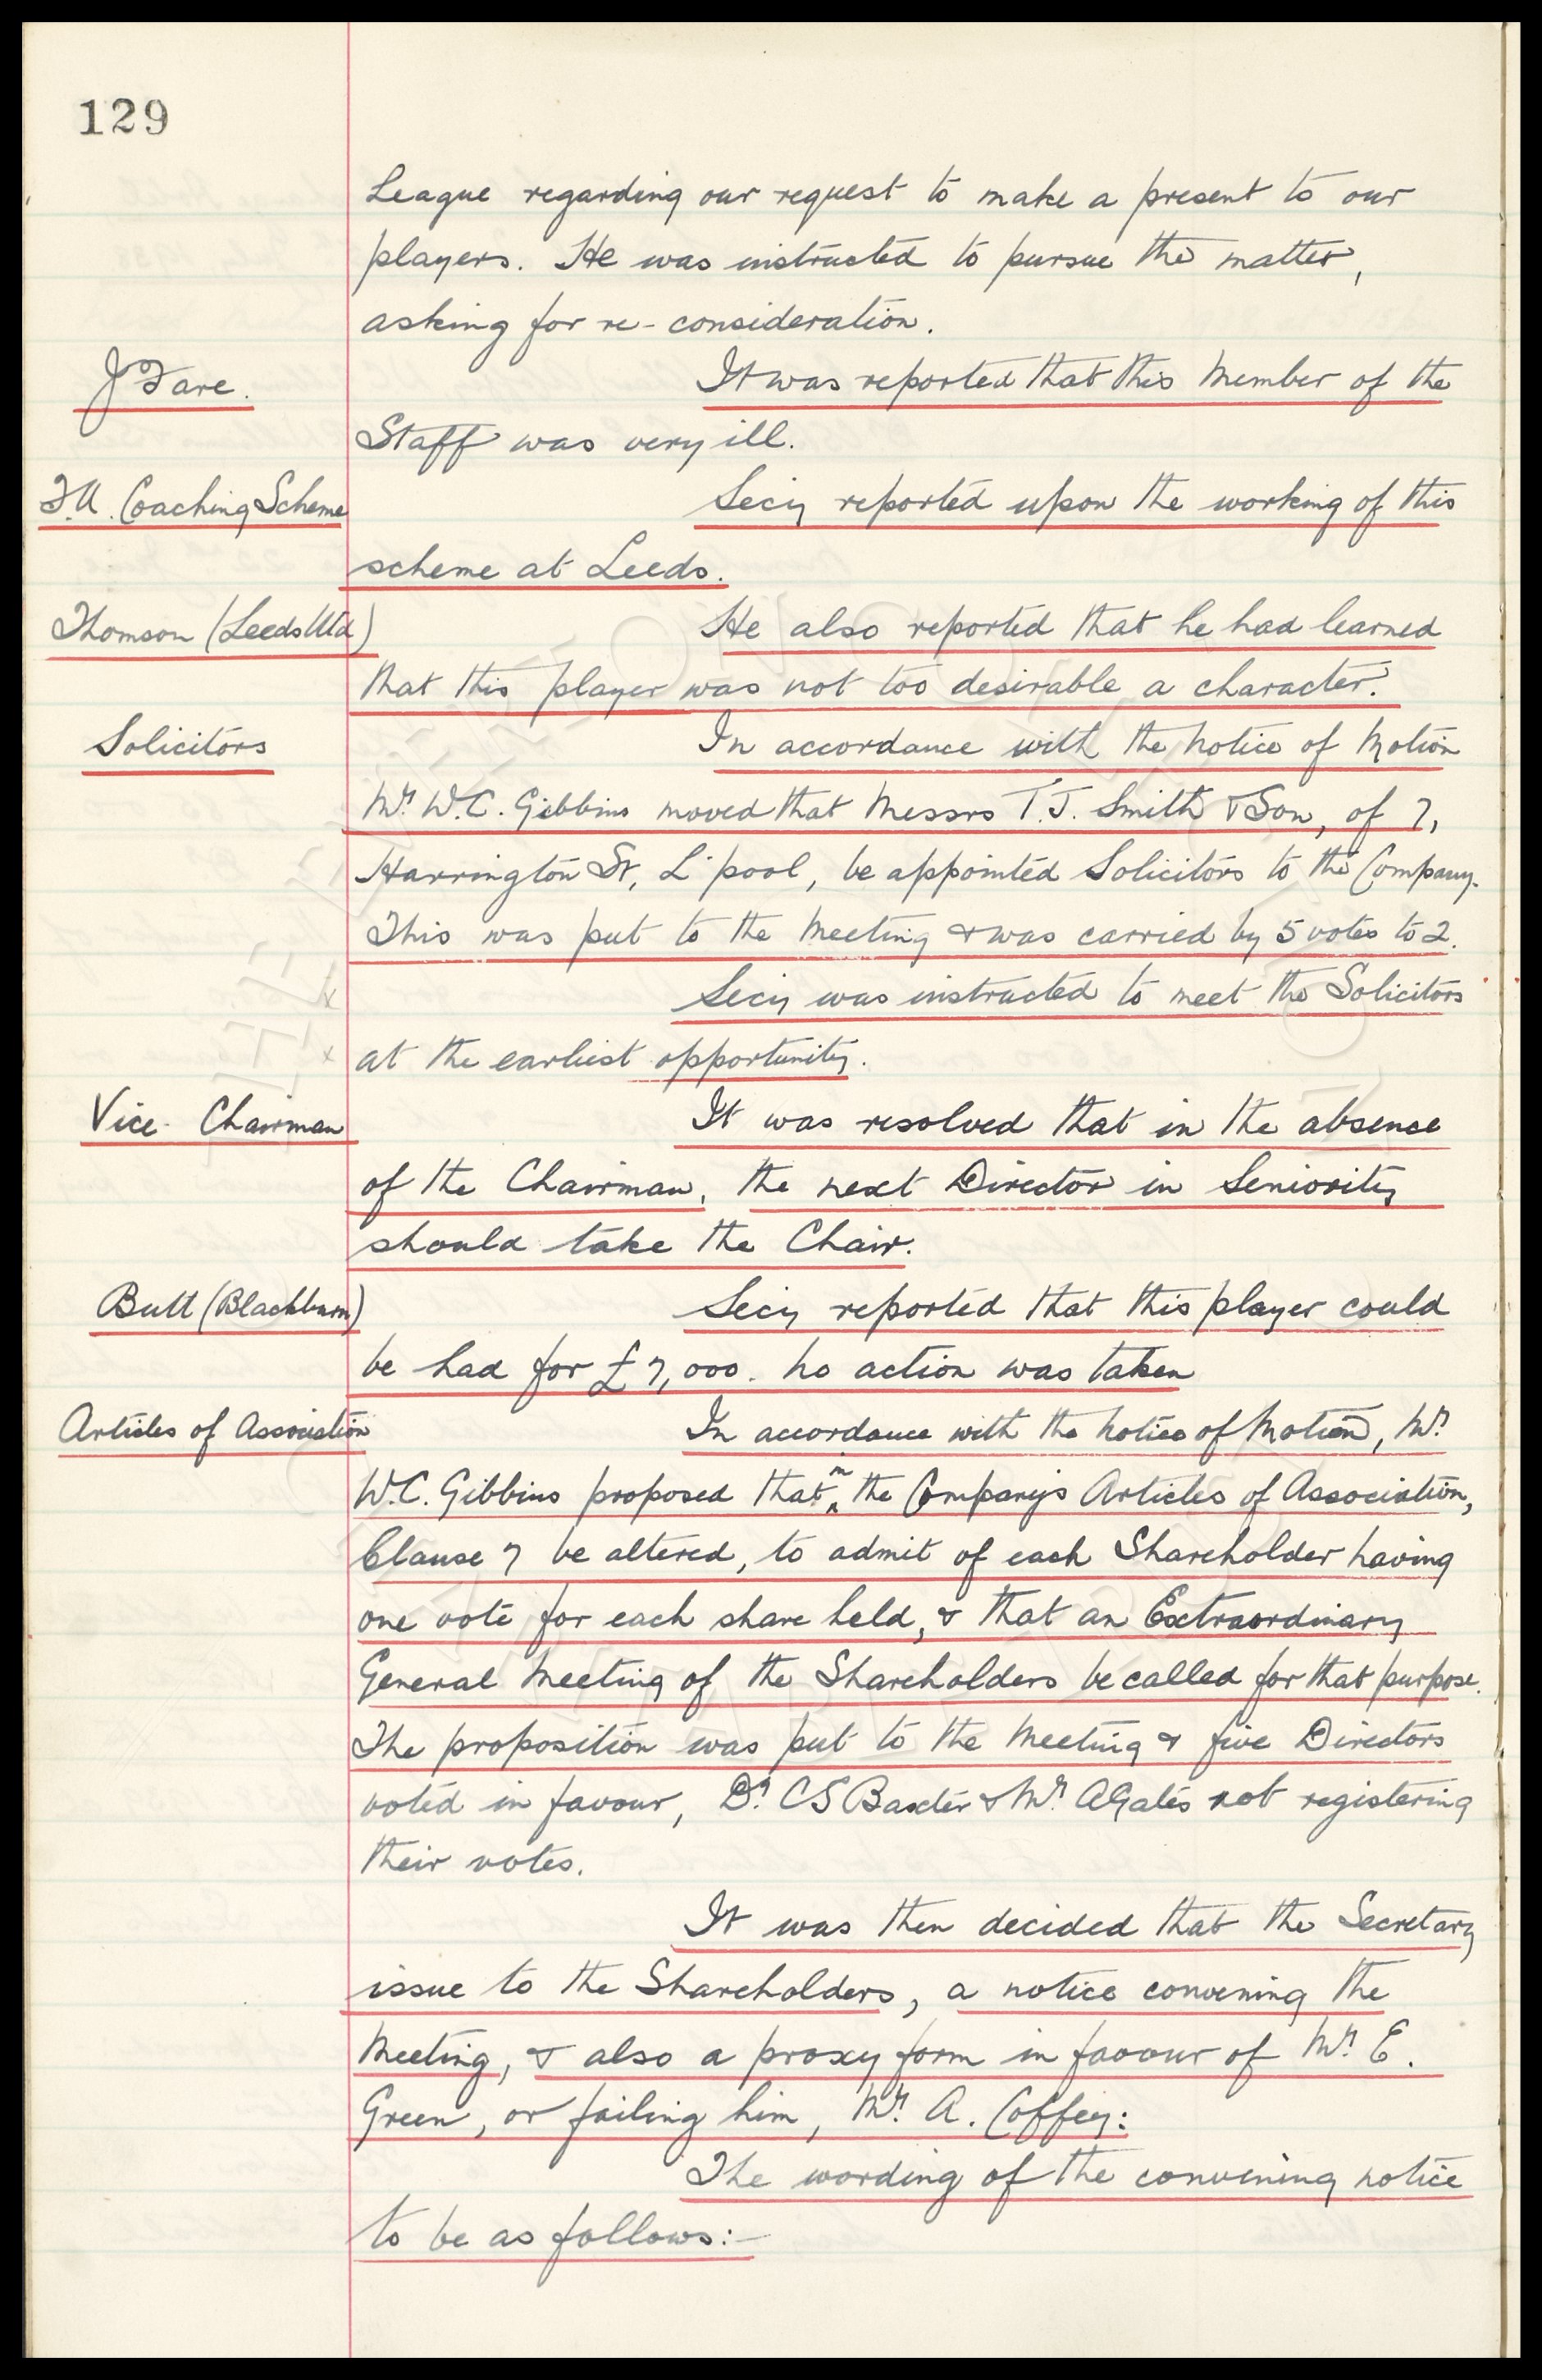 129
League regarding our request to make a present to our
players. He was instructed to pursue the matter,
asking for re-consideration.
J Fare.
It was reported that this Member of the
Staff was very ill.
F.A. Coaching Scheme
Secy reported upon the working of this
scheme at Leeds.
Thomson (Leeds Utd)
He also reported that he had learned
that this player was not too desirable a character.
Solicitors
In accordance with the Notice of Motion
Mr. W.C. Gibbins moved that Messrs T.J. Smith & Son, of 7,
Harrington St, L'pool, be appointed Solicitors to the Company.
This was put to the Meeting & was carried by 5 votes to 2.
Secy was instructed to meet the Solicitors
x
at the earliest opportunity.
x
Vice-Chairman
It was resolved that in the absence
of the Chairman, the next Director in Seniority
should take the Chair.
Butt (Blackburn)
Secy reported that this player could
be had for £7,000. No action was taken
Articles of Association
In accordance with the Notice of Motion, Mr.
W.C. Gibbins proposed that in the Company's Articles of Association,
Clause 7 be altered, to admit of each Shareholder having
one vote for each share held, & that an Extraordinary
General Meeting of the Shareholders be called for that purpose.
The proposition was put to the Meeting & five Directors
voted in favour, Dr. CS Baxter & Mr. A Gates not registering
their votes.
It was then decided that the Secretary
issue to the Shareholders, a notice convening the
Meeting, & also a proxy form in favour of Mr. E.
Green, or failing him, Mr. A. Coffey:
The wording of the convening notice
to be as follows:-